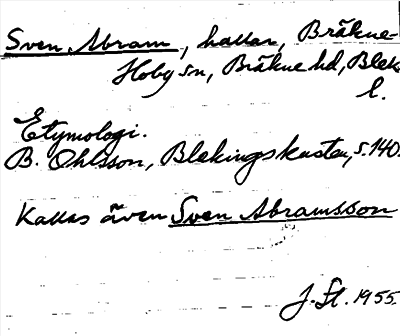 Sven Abram, hallar, Bräkne-
Hoby sn, Bräkne hd, Blek.
l.
Etymologi.
B. Ohlsson, Blekingskusten, s. 140.
Kallas även Sven Abramsson
J. Sl. 1955.